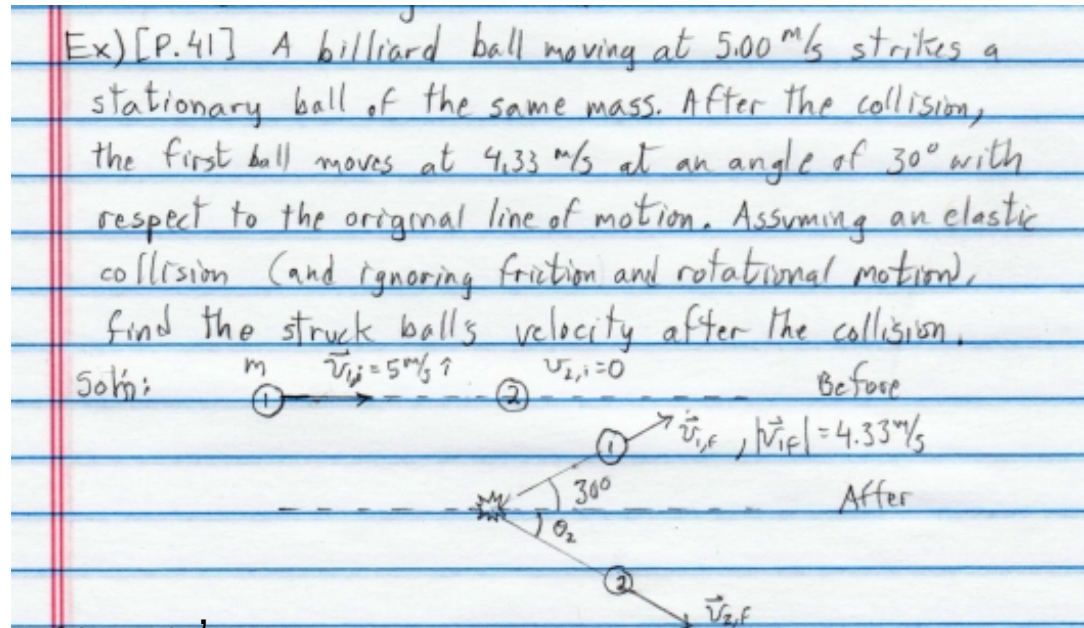 Ex) [P.41] A billiard ball moving at 5.00 m/s strikes a
stationary ball of the same mass. After the collision,
the first ball moves at 4.33 m/s at an angle of 30° with
respect to the original line of motion. Assuming an elastic
collision (and ignoring friction and rotational motion),
find the struck ball's velocity after the collision.
Sol'n: m v⃗1,i = 5 m/s î v2,i = 0
1 2 Before
1 v⃗1,f , |v⃗1f| = 4.33 m/s
30° After
θ2
2
v⃗2,f